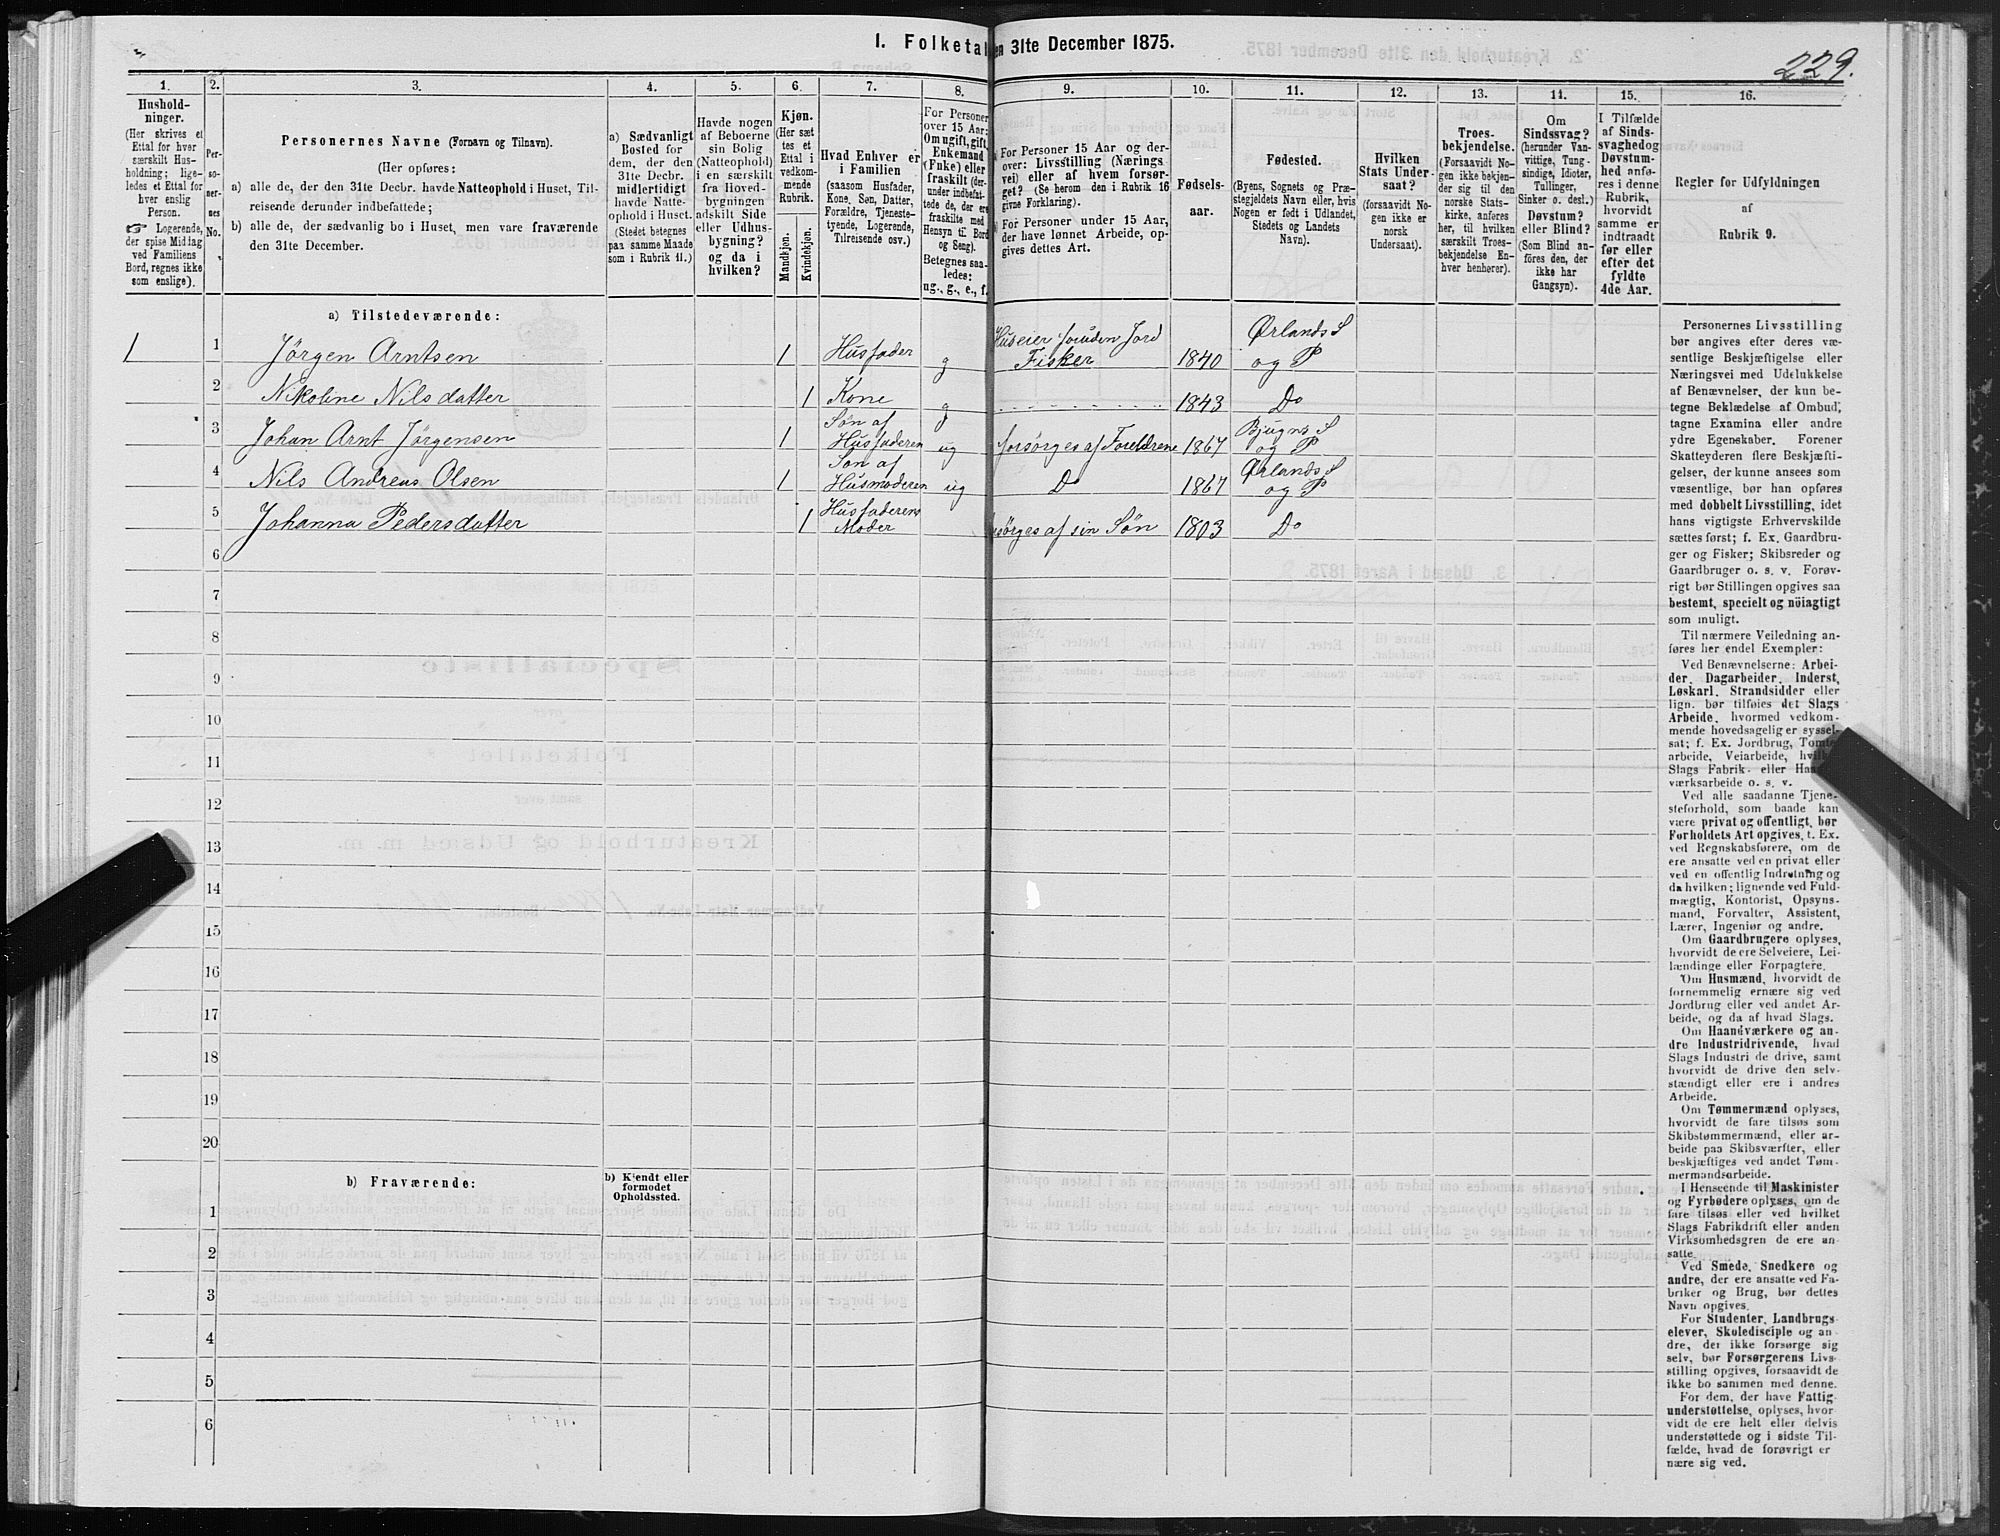 1. Folketal
en 31te December 1875.
229.
1.
Hushold-
ninger.
(Her skrives et
Ettal for hver
særskilt Hus-
holdning; lige-
ledes et Ettal for
hver enslig
Person.
☞ Logerende,
der spise Middag
ved Familiens
Bord, regnes ikke
som enslige).
2.
Per-
so-
ner-
nes
No.
3.
Personernes Navne (Fornavn og Tilnavn).
(Her opføres:
a) alle de, der den 31te Decbr. havde Natteophold i Huset, Til-
reisende derunder indbefattede;
b) alle de, der sædvanlig bo i Huset, men vare fraværende
den 31te December.
4.
a) Sædvanligt
Bosted for
dem, der den
31te Decbr.
midlertidigt
havde Natte-
ophold i Huset.
(Stedet betegnes
paa samme Maade
som i Rubrik 11.)
5.
Havde nogen
af Beboerne
sin Bolig
(Natteophold)
i en særskilt
fra Hoved-
bygningen
adskilt Side
eller Udhus-
bygning?
og da i
hvilken?
6.
Kjøn.
(Her sæt
tes et
Ettal i
vedkom-
mende
Rubrik.
Mandkjøn.
Kvindekjøn.
7.
Hvad Enhver er
i Familien
(saasom Husfader,
Kone, Søn, Datter,
Forældre, Tjeneste-
tyende, Logerende,
Tilreisende osv.)
8.
For Personer
over 15 Aar:
Om ugift, gift,
Enkemand
(Enke) eller
fraskilt (der-
under indbefat-
tede de, der ere
fraskilte med
Hensyn til Bord
og Seng).
Betegnes saa-
ledes:
ug., g., e., f.
9.
For Personer 15 Aar og der-
over: Livsstilling (Nærings
vei) eller af hvem forsør-
get? (Se herom den i Rubrik 16
givne Forklaring).
For Personer under 15 Aar,
der have lønnet Arbeide, op-
gives dettes Art.
10.
Fødsels-
aar.
11.
Fødested.
(Byens, Sognets og Præ-
stegjeldets Navn eller, hvis
Nogen er født i Udlandet,
Stedets og Landets
Navn).
12.
Hvilken
Stats Under-
saat?
(forsaavidt No-
gen ikke er
norsk
Undersaat).
13.
Troes-
bekjendelse.
(Forsaavidt No-
gen ikke bekjen-
der sig til den
norske Stats-
kirke, anføres
her, til hvilken
særskilt Troes-
bekjendelse En-
hver henhører).
14.
Om
Sindssvag?
(herunder Van-
vittige, Tung-
sindige, Idioter,
Tullinger,
Sinker o. desl.)
Døvstum?
eller Blind?
(Som Blind an-
føres den, der
ikke har
Gangsyn).
15.
I Tilfælde
af Sinds-
svaghed og
Døvstum-
hed anfø-
res i denne
Rubrik,
hvorvidt
samme er
indtraadt
før eller
efter det
fyldte
4de Aar.
16.
Regler for Udfyldningen
af
Rubrik 9.
a) Tilstedeværende:
1 1 Jörgen Arntsen 1 Husfader g Huseier foruden Jord
Fisker 1840 Ørlands S
og P
2 Nikoline Nilsdatter 1 Kone g 1843 Do
3 Johan Arnt Jörgensen 1 Søn af
Husfaderen ug forsörges af Foreldrene 1867 Bjugns S
og P
4 Nils Andreas Olsen 1 Søn af
Husmoderen ug Do 1867 Ørlands S
og P
5 Johanna Pedersdatter 1 Husfaderens
Moder sörges af sin Søn 1803 Do
6
7
8
9
10
11
12
13
14
15
16
17
18
19
20
b) Fraværende:
b) Kjendt eller
formodet
Opholdssted.
1
2
3
4
5
6
Personernes Livsstilling
bør angives efter deres væ-
sentlige Beskjæftigelse eller
Næringsvei med Udelukkelse
af Benævnelser, der kun be-
tegne Beklædelse af Ombud,
tagne Examina eller andre
ydre Egenskaber. Forener
Skatteyderen flere Beskjæfti-
gelser, der kunne ansees som
væsentlige, bør han opføres
med dobbelt Livsstilling, idet
hans vigtigste Erhvervskilde
sættes først; f. Ex. Gaardbru-
ger og Fisker; Skibsreder og
Gaardbruger o. s. v. Forøv-
rigt bør Stillingen opgives saa
bestemt, specielt og nöiagtigt
som muligt.
Til nærmere Veiledning an-
føres her endel Exempler:
Ved Benævnelserne: Arbei-
der, Dagarbeider, Inderst,
Løskarl, Strandsidder eller
lign. bør tilføies det Slags
Arbeide, hvormed vedkom-
mende hovedsagelig er syssel-
sat; f. Ex. Jordbrug, Tomte-
arbeide, Veiarbeide, hvilket
Slags Fabrik- eller Haand-
værksarbeide o. s. v.
Ved alle saadanne Tjene-
steforhold, som baade kan
være privat og offentligt, bør
Forholdets Art opgives, t. Ex.
ved Regnskabsførere, om de
ere ansatte ved en privat eller
ved en offentlig Indretning og
da hvilken; lignende ved Fuld-
mægtig, Kontorist, Opsyns-
mand, Forvalter, Assistent,
Lærer, Ingeniør og andre.
Om Gaardbrugere oplyses,
hvorvidt de ere Selveiere, Lei-
lændinge eller Forpagtere.
Om Husmænd, hvorvidt de
fornemmelig ernære sig ved
Jordbrug eller ved andet Ar-
beide, og da af hvad Slags.
Om Haandværkere og an-
dre Industridrivende, hvad
Slags Industri de drive, samt
hvorvidt de drive den selv-
stændigt eller ere i andres
Arbeide.
Om Tømmermænd oplyses,
hvorvidt de fare tilsøs som
Skibstømmermænd, eller ar-
beide paa Skibsværfter, eller
beskjæftiges ved andet Tøm-
mermandsarbeide.
I Henseende til Maskinister
og Fyrbødere oplyses, om de
fare tilsøs eller ved hvilket
Slags Fabrikdrift eller anden
Virksomhedsgren de ere an-
satte.
Ved Smede, Snedkere og
andre, der ere ansatte ved Fa-
briker og Brug, bør dettes
Navn opgives.
For Studenter, Landbrugs-
elever, Skoledisciple og an-
dre, der ikke forsørge sig
selv, bør Forsørgerens Livs-
stilling opgives, forsaavidt de
ikke bo sammen med denne.
For dem, der have Fattig-
understøttelse, oplyses, hvor-
vidt de ere helt eller delvis
understøttede og i sidste Til-
fælde, hvad de forøvrigt er
nære sig ved.